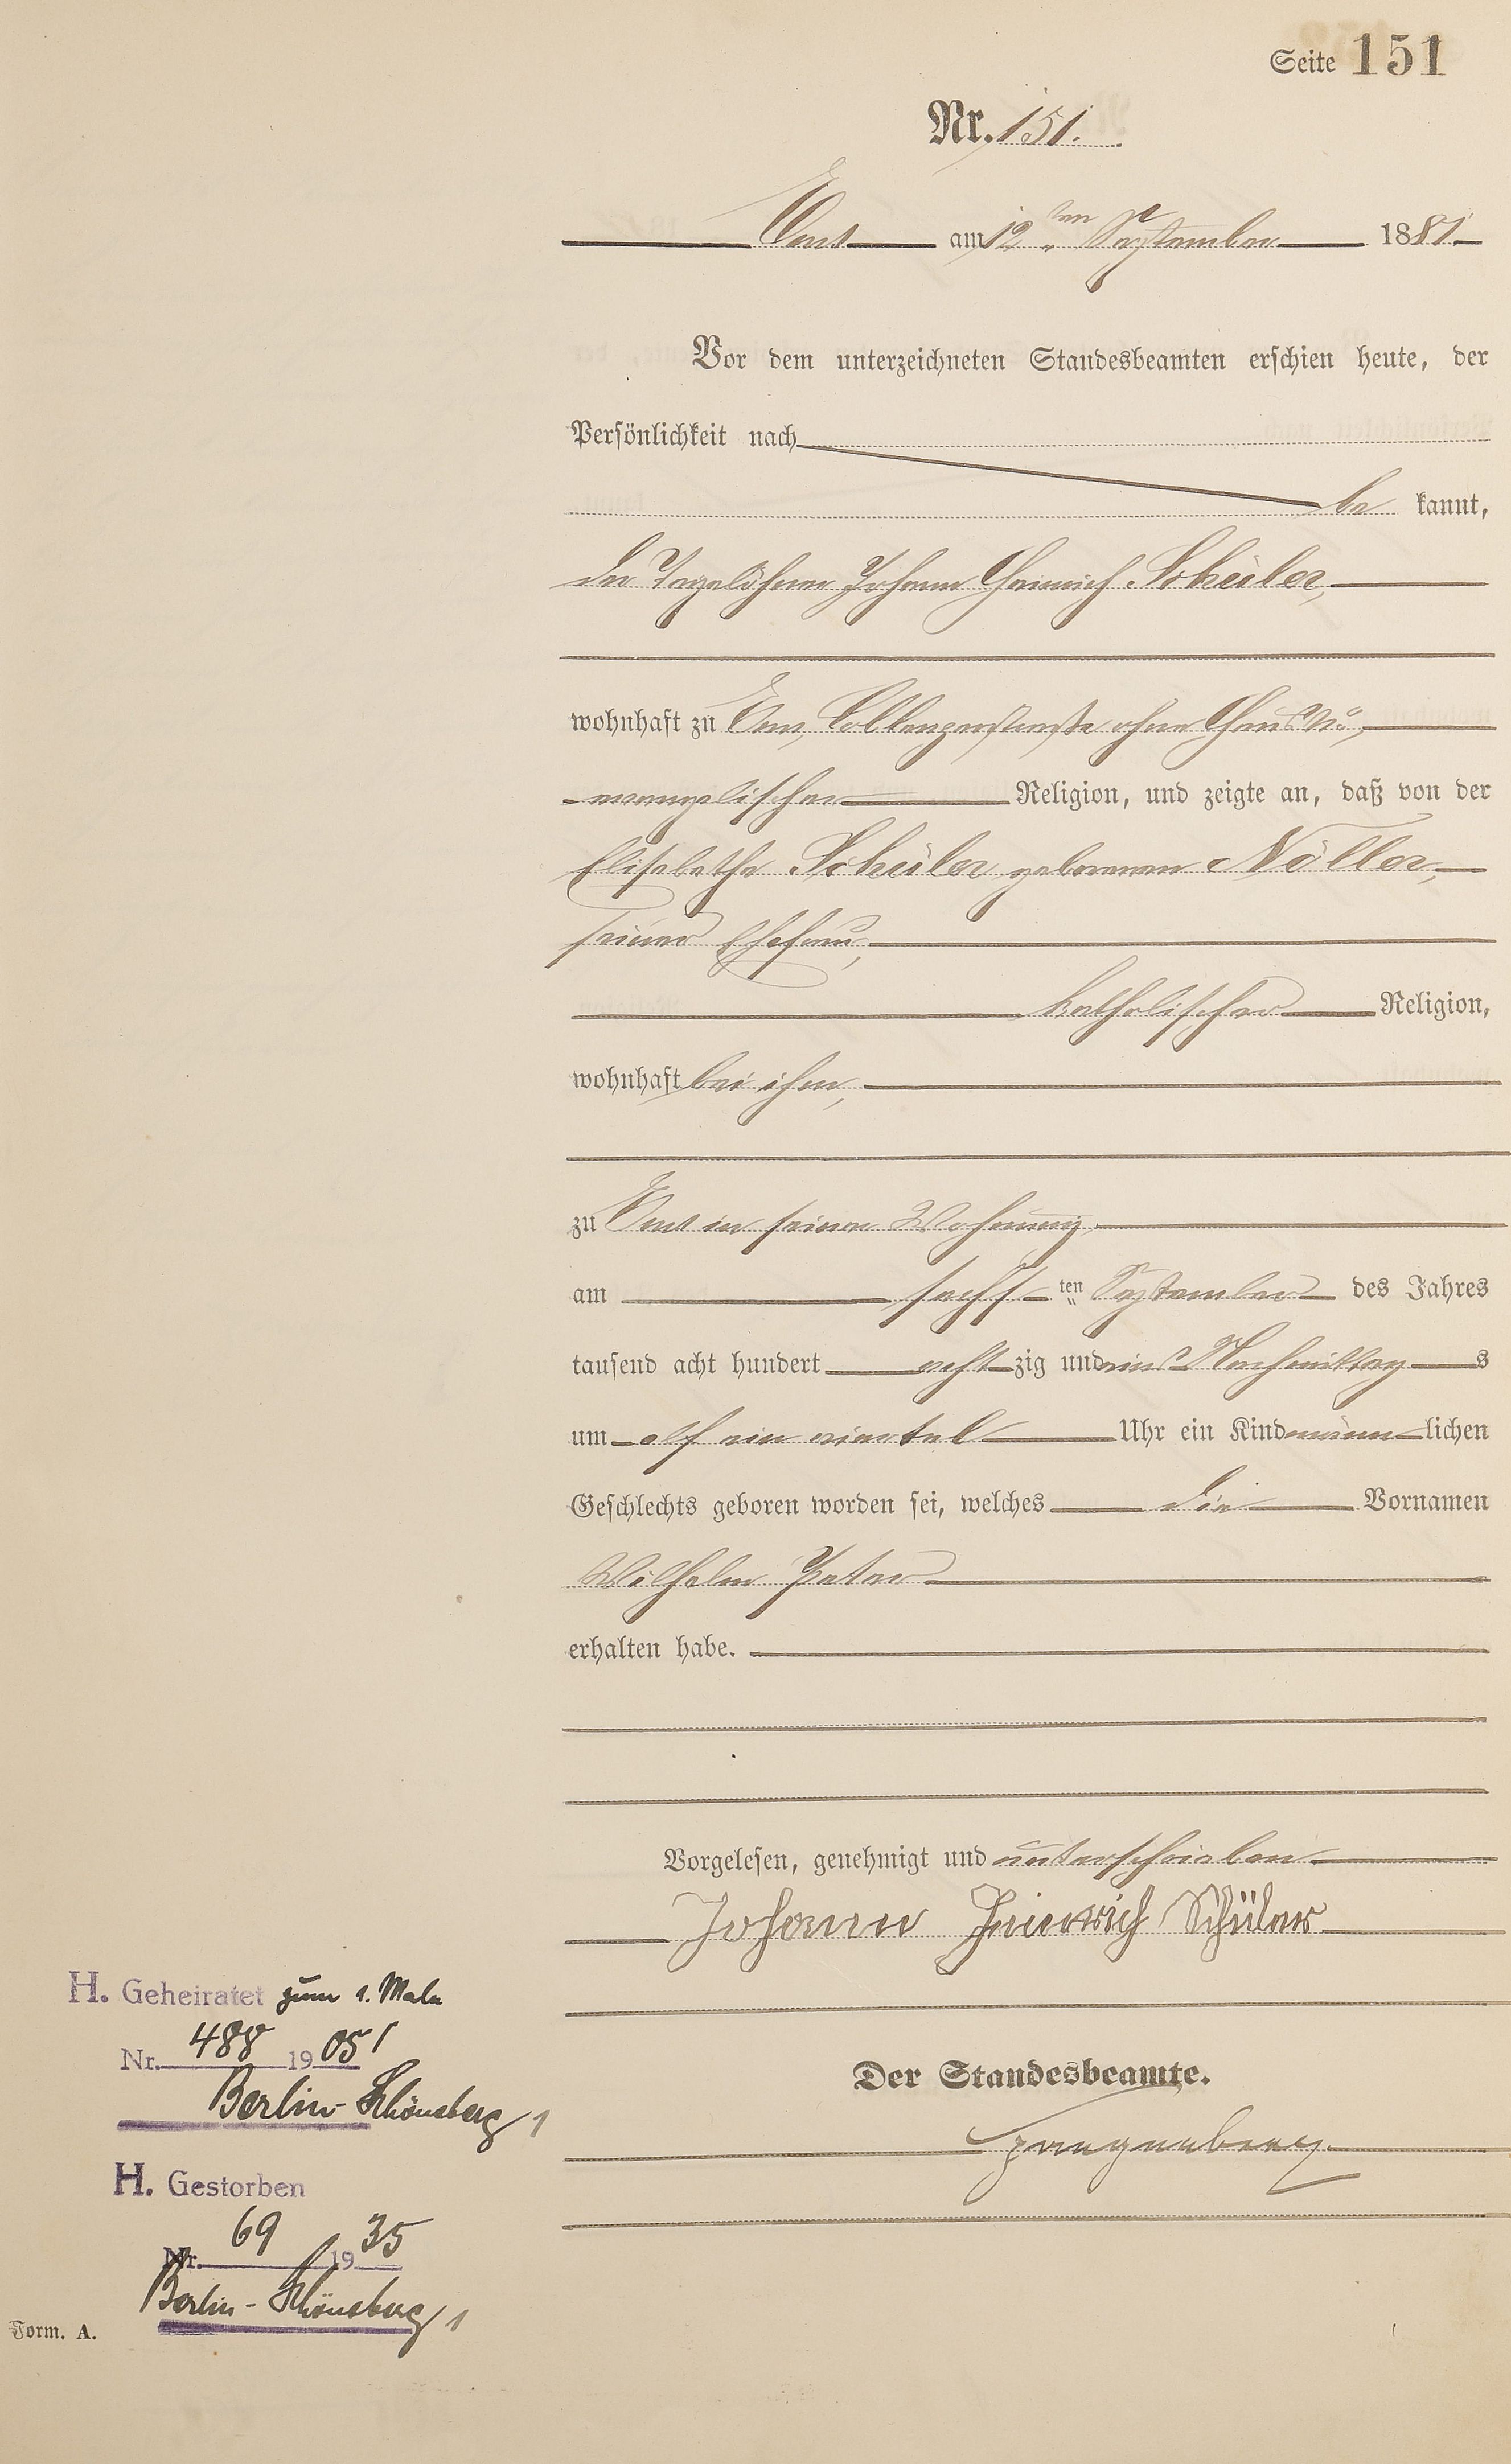 Seite 151
Nr. 151.
Ems am 12ten September 1881
Vor dem unterzeichneten Standesbeamten erschien heute, der
Persönlichkeit nach
be kannt,
der Tagelöhner Johann Heinrich Schüler,
wohnhaft zu Ems, Coblenzerstraße ohne Haus No,
evangelischer Religion, und zeigte an, daß von der
Elisabetha Schüler geborenen Nöller,
seiner Ehefrau,
katholischer Religion,
wohnhaft bei ihm,
zu Ems in seiner Wohnung,
am sechsten September des Jahres
tausend acht hundert achtzig und eins Nachmittags
um elf ein viertel Uhr ein Kind männlichen
Geschlechts geboren worden sei, welches die Vornamen
Wilhelm Peter
erhalten habe.
Vorgelesen, genehmigt und unterschrieben
Johann Heinrich Schüler
Der Standesbeamte.
H. Geheiratet zum 1. Male
Nr. 488 1905
Berlin-Schöneberg 1
H. Gestorben
Nr. 69 1935
Berlin-Schöneberg 1
Form. A.